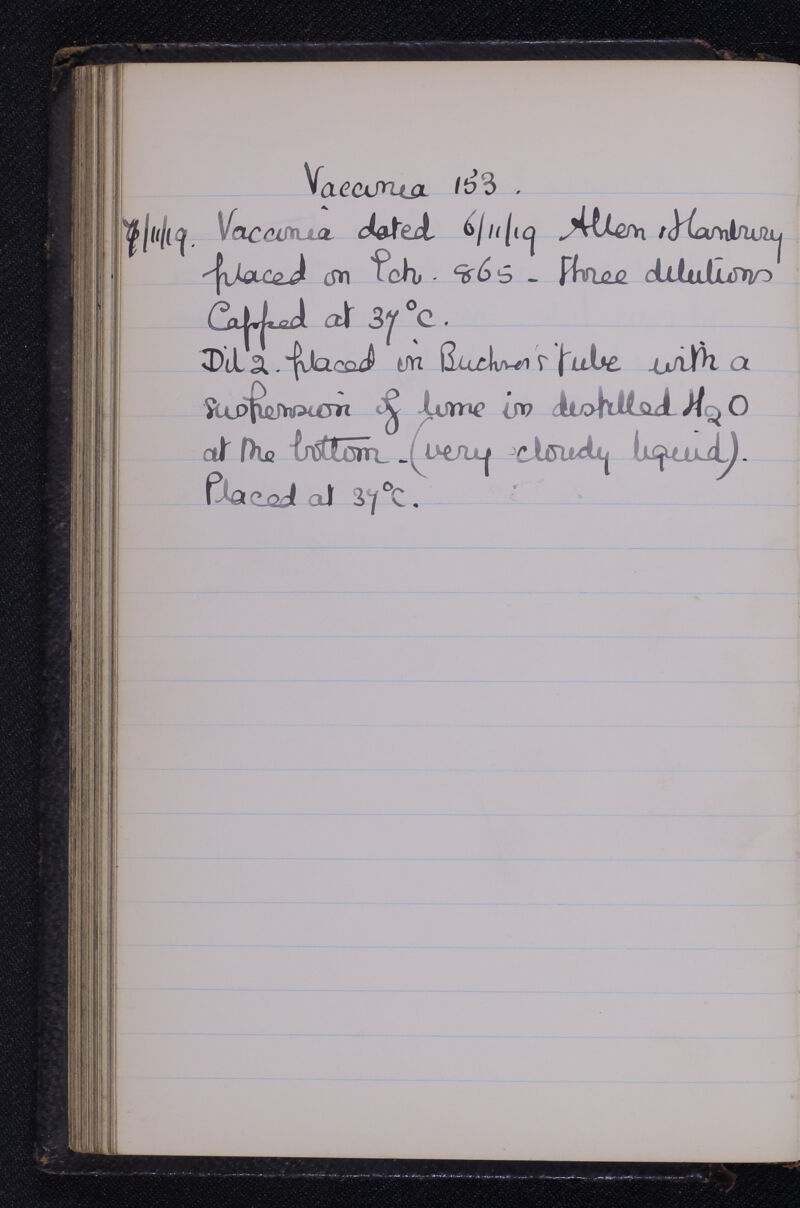 Vaccinia 153.
7/11/19. Vaccinia dated 6/11/19 Allen & Hanbury
placed on Pch. 865 - Three dilutions
Capped at 37°C.
Dil 2. placed in Buchner's tube with a
suspension of lime in distilled H2O
at the bottom - (very cloudy liquid).
Placed at 37°C.